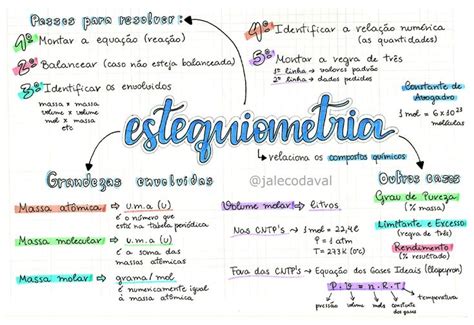 Passos para resolver:
1º Montar a equação (reação)
2º Balancear (caso não esteja balanceada)
3º Identificar os envolvidos
massa x massa
volume x volume
mol x massa
etc
4º Identificar a relação numérica
(as quantidades)
5º Montar a regra de três
1ª linha → valores padrão
2ª linha → dados pedidos
Constante de
Avogadro
1 mol = 6 x 10²³
moléculas
estequiometria
relaciona os compostos químicos
@jalecodaval
Grandezas envolvidas
Massa atômica → u.m.a (U)
é o número que
está na tabela periódica
Massa molecular → u.m.a (U)
é a soma das
massas atômicas
Massa molar → grama/mol
é numericamente igual
à massa atômica
Volume molar → litros
Nas CNTP's → 1 mol = 22,4L
P = 1 atm
T = 273K (0°C)
Fora das CNTP's → Equação dos Gases Ideais (Clapeyron)
P.V = n.R.T
pressão
volume
mols
constante
dos gases
temperatura
Outros casos
Grau de Pureza
(% massa)
Limitante e Excesso
(regra de três)
Rendimento
(% resultado)